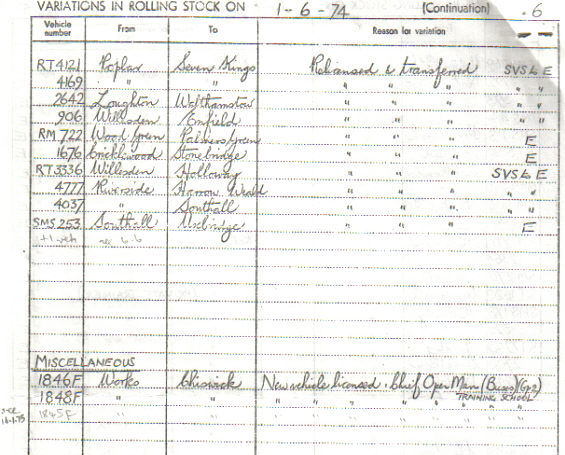 VARIATIONS IN ROLLING STOCK ON 1-6-74 (Continuation) .6
Vehicle number From To Reason for variation - -
RT4121 Poplar Seven Kings Relicensed & transferred SVSLE
4169 " " " " " " "
2642 Loughton Walthamstow " " " " "
906 Willesden Enfield " " " " "
RM 722 Wood Green Palmers Green " " " E
1676 Cricklewood Stonebridge " " " E
RT3336 Willesden Holloway " " " SVSLE
4777 Riverside Harrow Weald " " " " "
4037 " Southall " " " " "
SMS 253 Southall Uxbridge " " " E
+1 veh 6-6
MISCELLANEOUS
1846F Works Chiswick New vehicle licensed. Chief Oper Man (Buses)(Gp2)
1848F " " " " " " " " TRAINING SCHOOL
16-1-75 1845F " " " " " " " " "